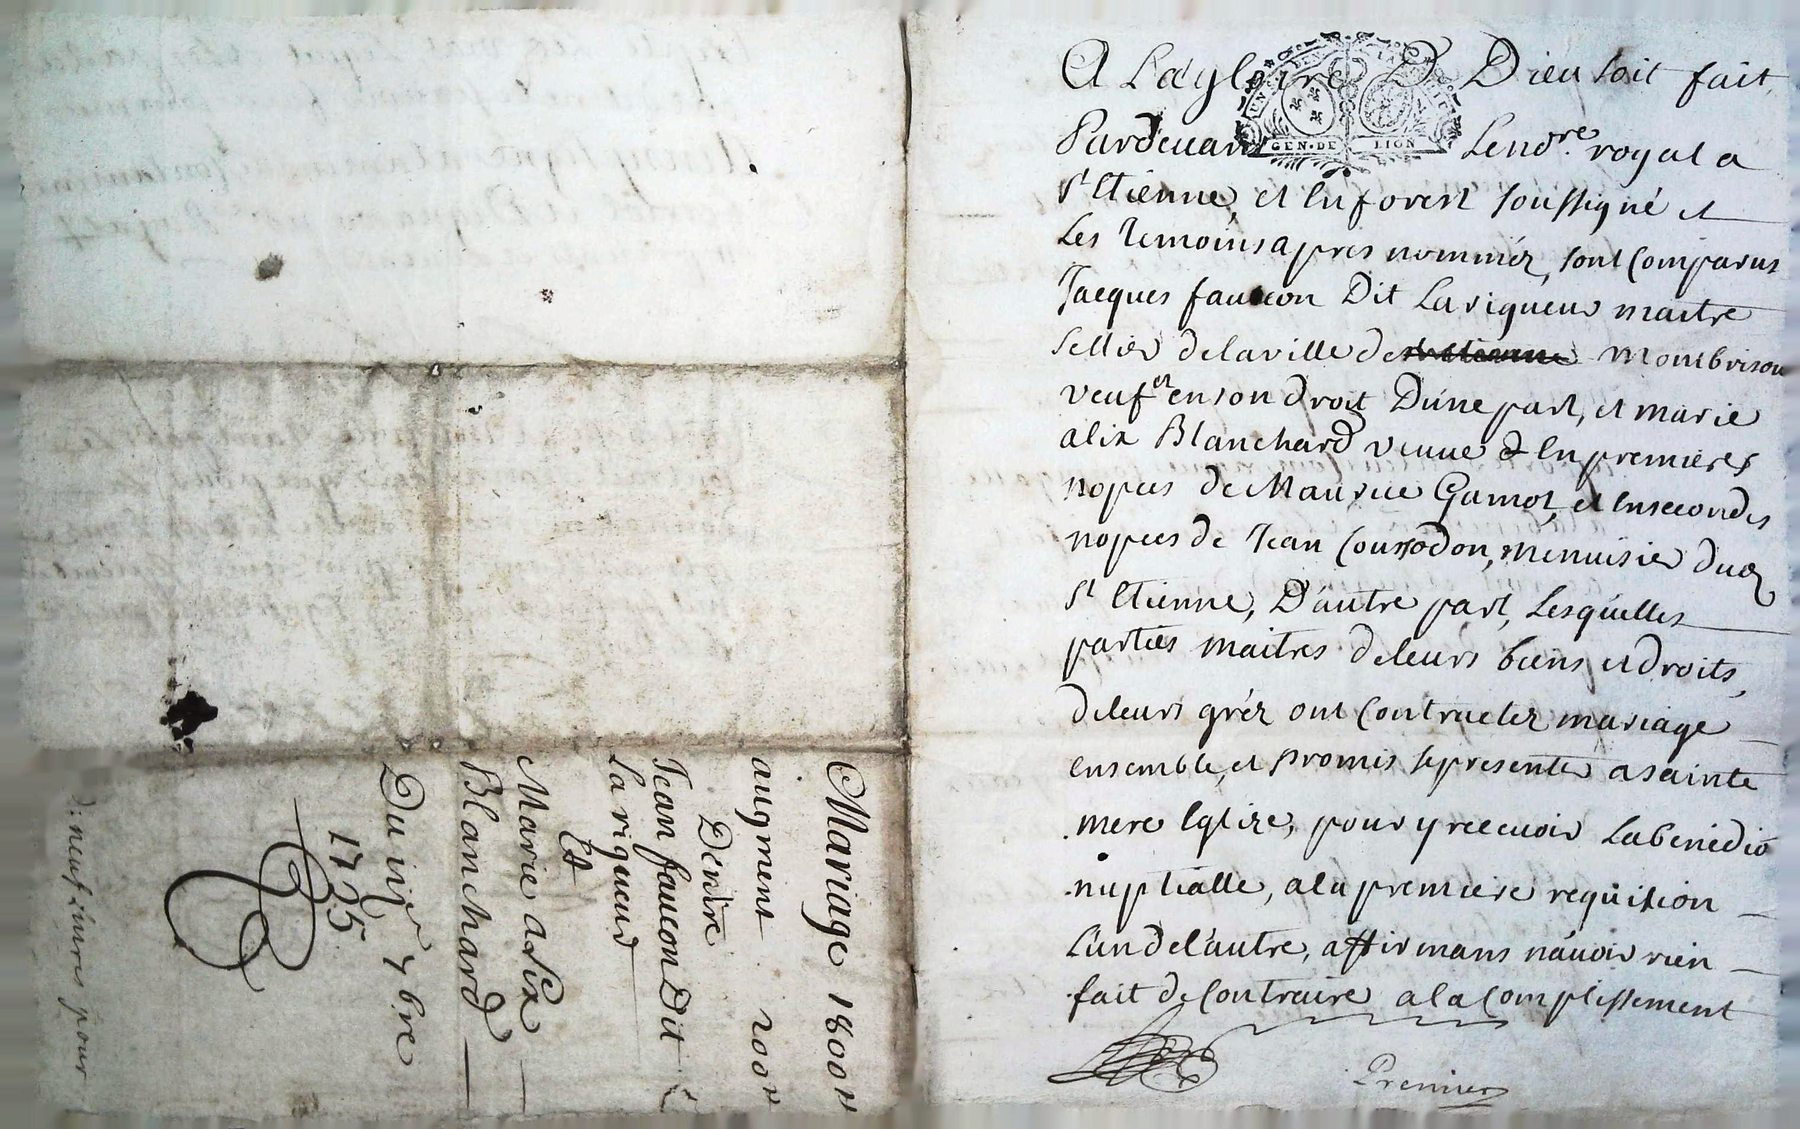 A La gloire D Dieu soit fait,
Pardevant Leno.re royal a
St Etienne, et En forest soussigné et
Les temoins apres nomméz, sont Comparus
Jacques faucon Dit La rigueur maitre
sellier de la ville de Montbrison
veuf et en son droit D'une part, et marie
alix Blanchard veuve & En premieres
nopces de Maurice Gamot, et En secondes
nopces de Jean Coursodon, menuisier dud
St Etienne, D'autre part, Lesquelles
parties maitres de leurs biens et droits,
de leurs gréz ont Contractez mariage
ensemble, et promis se presenter a sainte
mere Eglize, pour y recevoir La benedio
nuptialle, a la premiere requisition
L'un de l'autre, affirmans n'avoir rien
fait de Contraire a la Complissement
Premier
Mariage 1800 tt
augment 200 tt
D'entre
Jean faucon Dit
La rigueur
Et
Marie alix
Blanchard
Du 7 bre
1725
neuf livres pour
UN S DEN LA GNALITE
GEN. DE LION